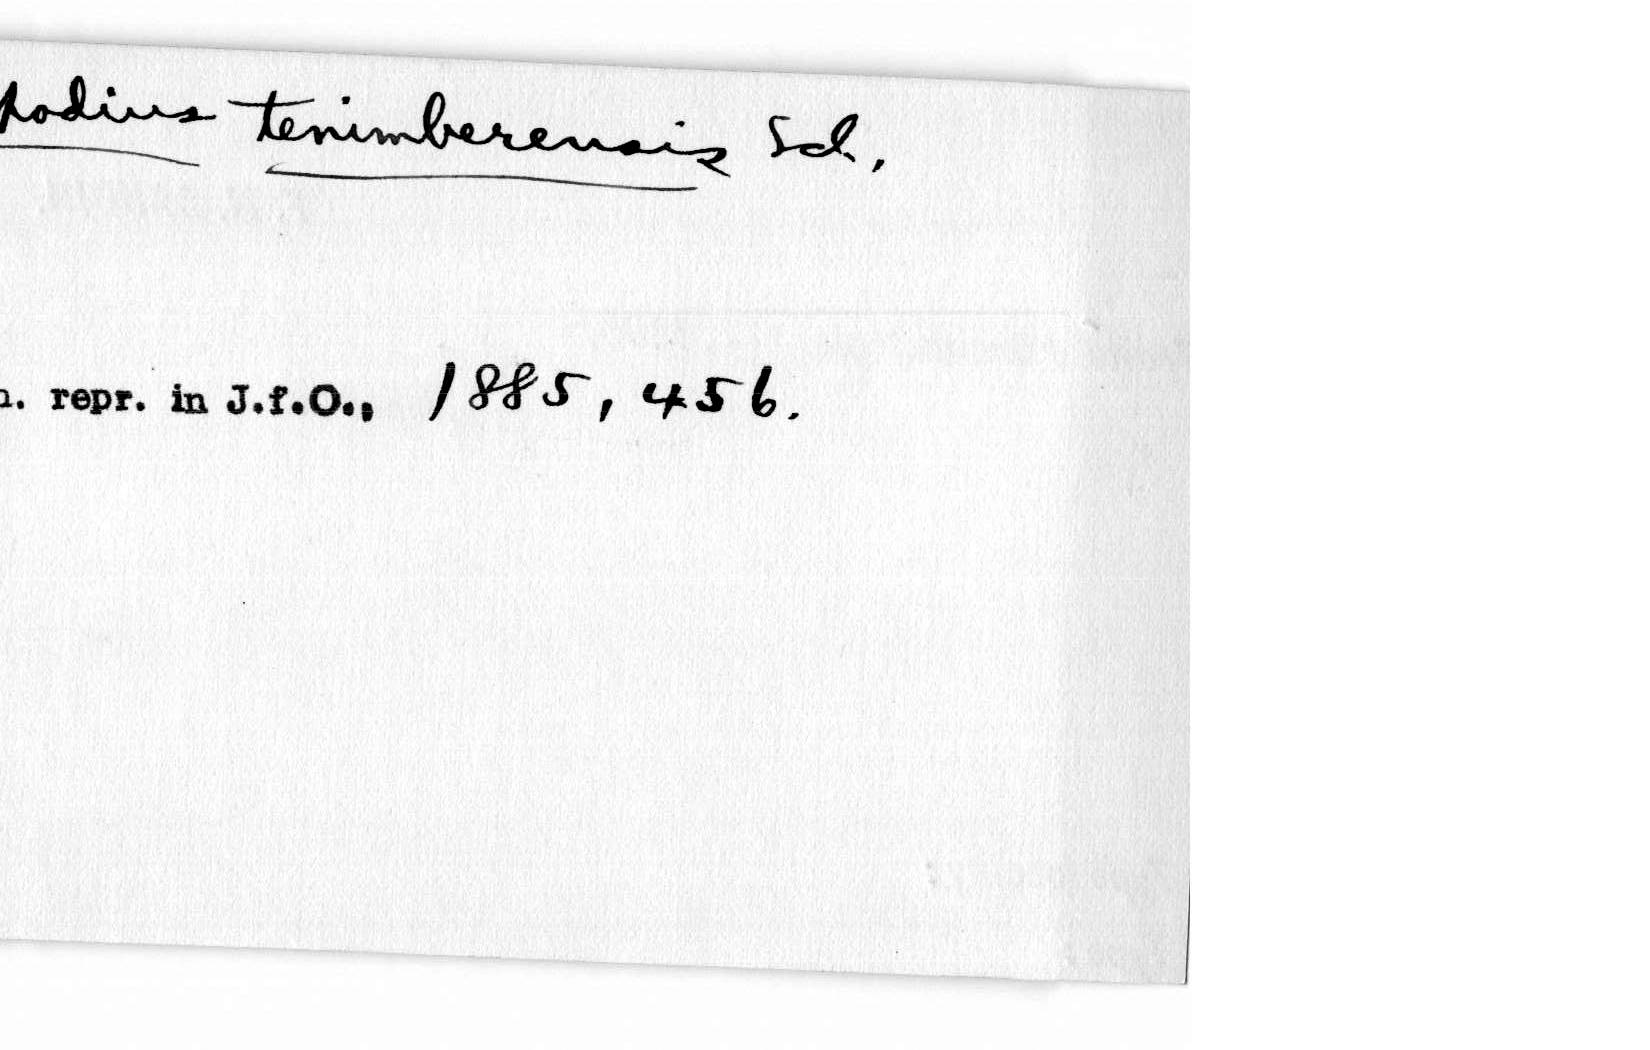 podius tenimberensis Scl.
n. repr. in J.f.O., 1885, 456.